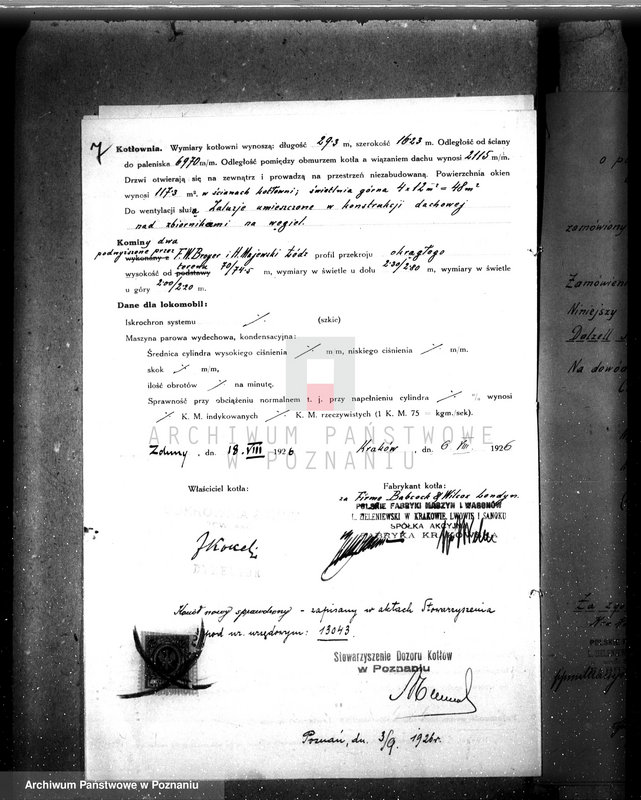 7
Kotłownia. Wymiary kotłowni wynoszą: długość 29·3 m, szerokość 16·23 m. Odległość od ściany
do paleniska 6970 m/m. Odległość pomiędzy obmurzem kotła a wiązaniem dachu wynosi 2115 m/m.
Drzwi otwierają się na zewnątrz i prowadzą na przestrzeń niezabudowaną. Powierzchnia okien
wynosi 117·3 m². w ścianach kotłowni; świetlnia górna 4×12 m² = 48 m²
Do wentylacji służą żaluzje umieszczone w konstrukcji dachowej
nad zbiornikami na węgiel.
Kominy dwa
podwyższone przez
wykonany z F. W. Broyer i H. Majewski Łódź profil przekroju okrągłego
terenu
wysokość od podstawy 70/74·5 m, wymiary w świetle u dołu 2·30/2·80 m, wymiary w świetle
u góry 2·00/2·20 m.
Dane dla lokomobil:
Iskrochron systemu (szkic)
Maszyna parowa wydechowa, kondensacyjna:
Średnica cylindra wysokiego ciśnienia m/m, niskiego ciśnienia m/m.
skok m/m,
ilość obrotów na minutę.
Sprawność przy obciążeniu normalnem t. j. przy napełnieniu cylindra % wynosi
K. M. indykowanych K. M. rzeczywistych (1 K. M. 75 = kgm./sek).
ARCHIWUM PAŃSTWOWE
W POZNANIU
Zduny, dn. 18. VIII 1926 Kraków, dn. 6 VIII 1926
Właściciel kotła: Fabrykant kotła:
za Firmę Babcock & Wilcox Londyn.
POLSKIE FABRYKI MASZYN I WAGONÓW
L. ZIELENIEWSKI W KRAKOWIE, LWOWIE I SANOKU
SPÓŁKA AKCYJNA
FABRYKA KRAKOWSKA
DYREKTOR
Kocioł nowy sprawdzony - zapisany w aktach Stowarzyszenia
pod nr. urzędowym: 13043
Stowarzyszenie Dozoru Kotłów
w Poznaniu
Poznań, dn. 3/9. 1926 r.
o p
zamówiony
Zamówieni
Niniejszy
Dalzell
Na dowó
Za zgo
Archiwum Państwowe w Poznaniu